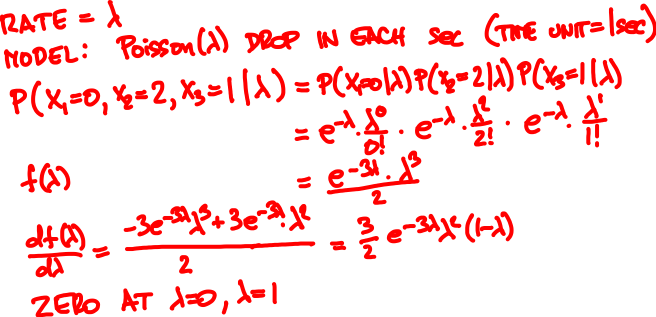 RATE = λ
MODEL: Poisson(λ) DROP IN EACH sec (TIME UNIT=1sec)
P(X₁=0, X₂=2, X₃=1|λ) = P(X₁=0|λ)P(X₂=2|λ)P(X₃=1|λ)
= e^{-λ}·λ⁰/0! · e^{-λ}·λ²/2! · e^{-λ}·λ¹/1!
f(λ) = e^{-3λ}·λ³/2
df(λ)/dλ = (-3e^{-3λ}λ³+3e^{-3λ}·λ²)/2 = 3/2 e^{-3λ}λ²(1-λ)
ZERO AT λ=0, λ=1